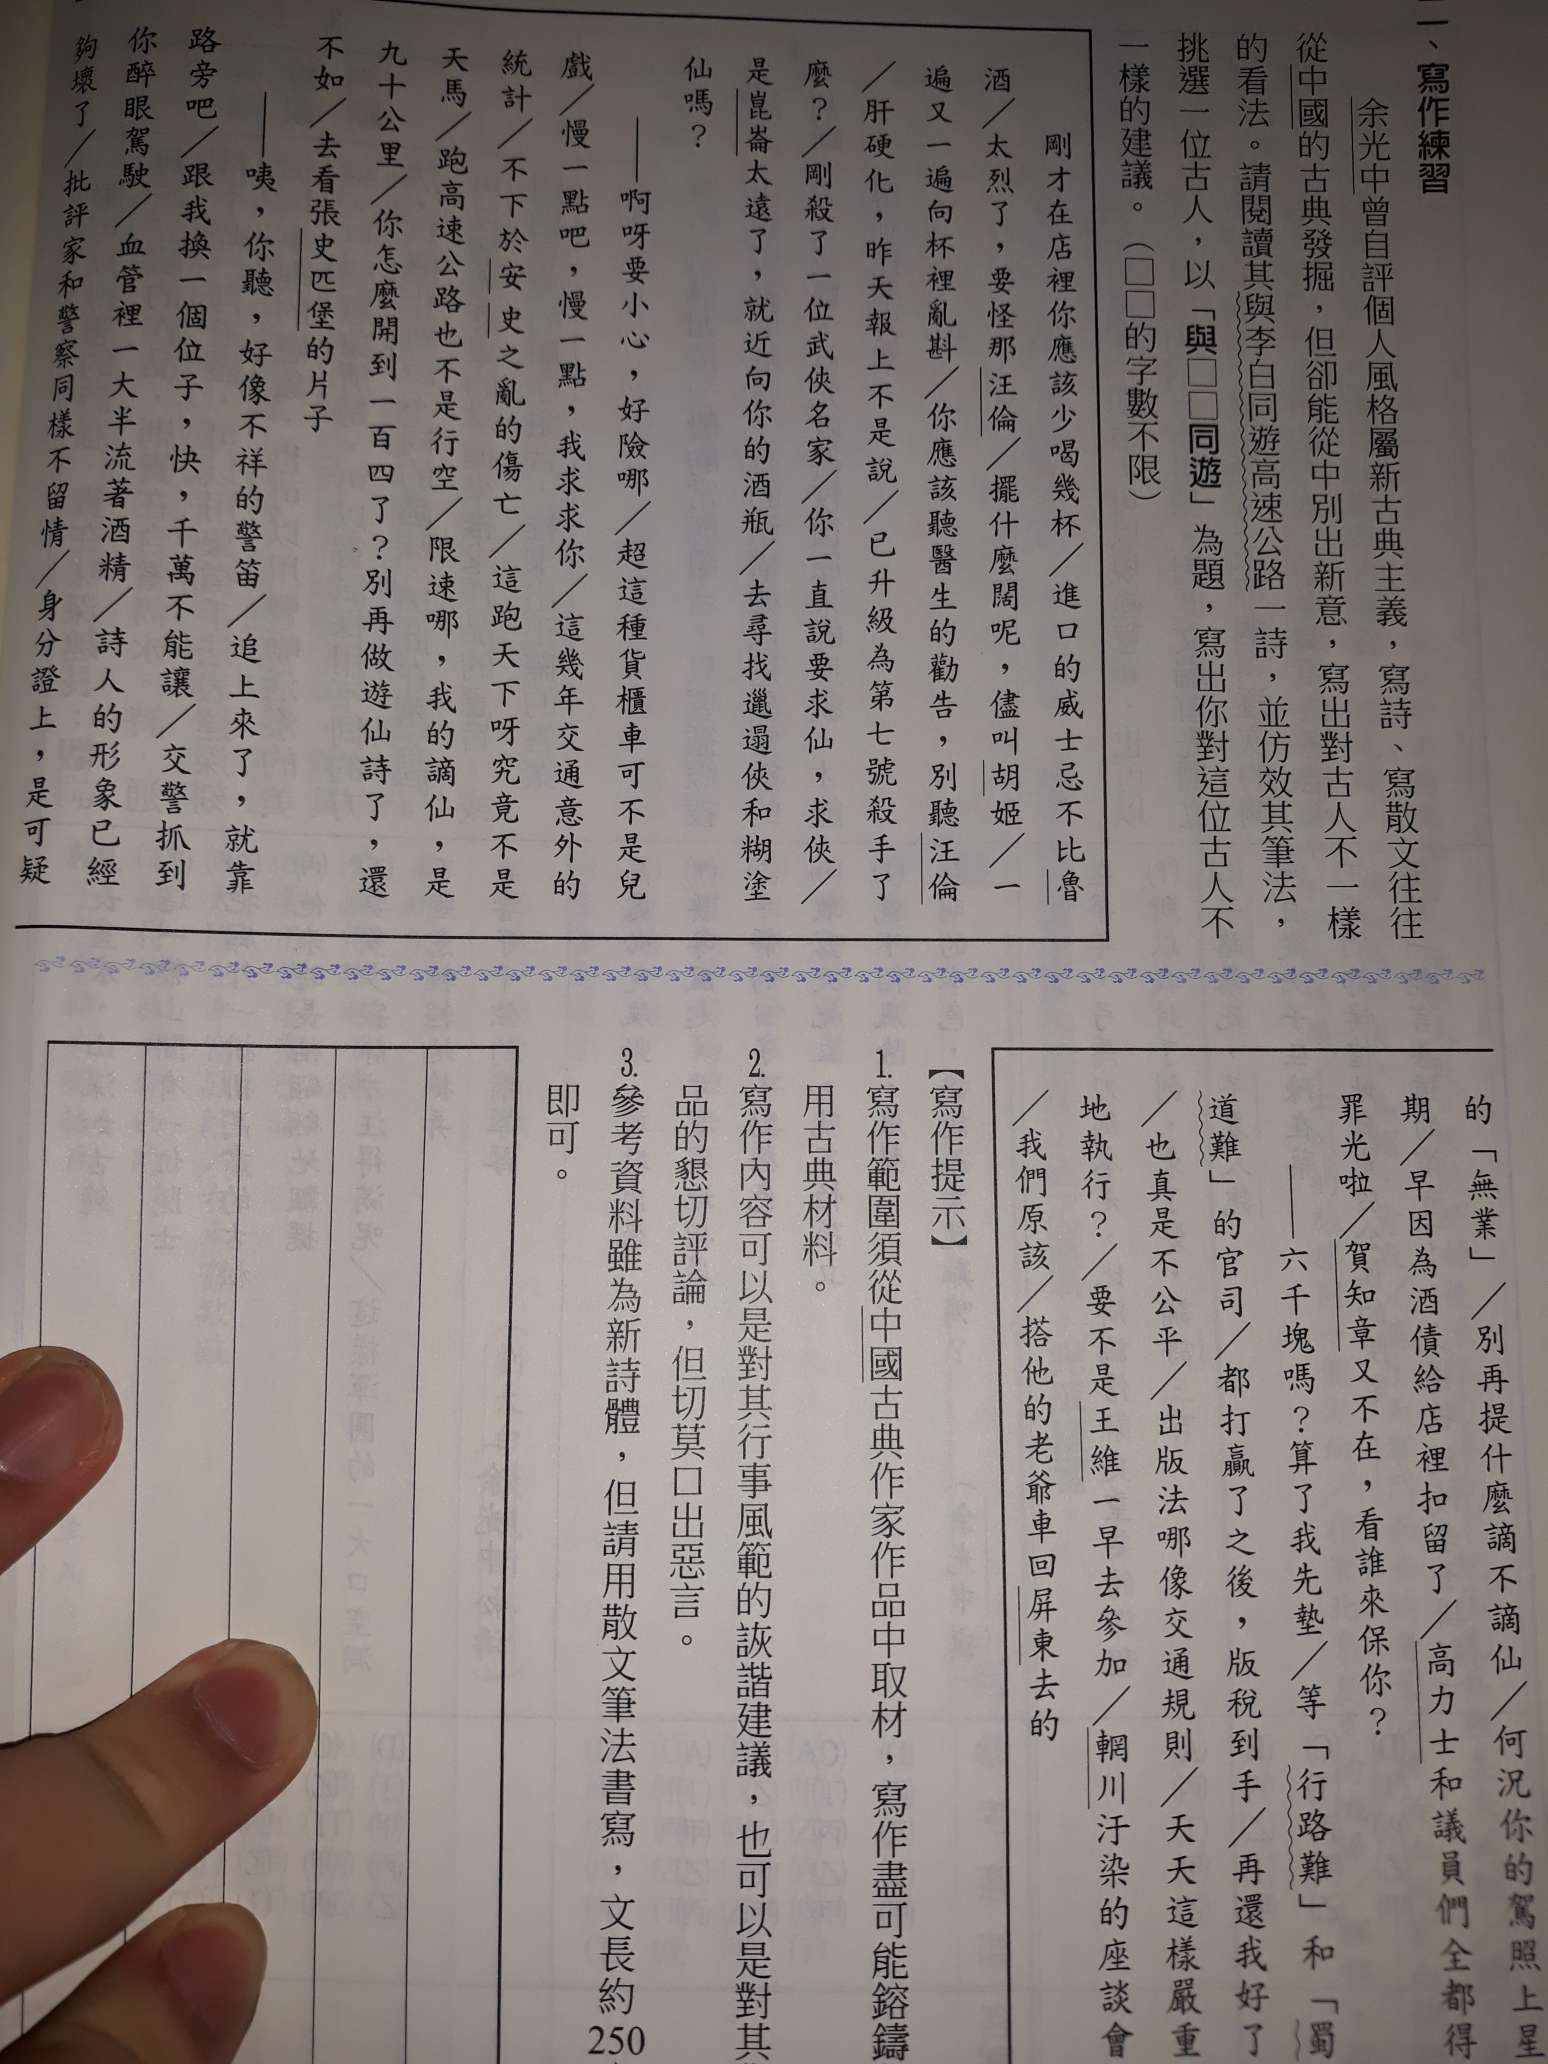 二、寫作練習
余光中曾自評個人風格屬新古典主義，寫詩、寫散文往往
從中國的古典發掘，但卻能從中別出新意，寫出對古人不一樣
的看法。請閱讀其與李白同遊高速公路一詩，並仿效其筆法，
挑選一位古人，以「與□□同遊」為題，寫出你對這位古人不
一樣的建議。（□□的字數不限）
剛才在店裡你應該少喝幾杯／進口的威士忌不比魯
酒／太烈了，要怪那汪倫／擺什麼闊呢，儘叫胡姬／一
遍又一遍向杯裡亂斟／你應該聽醫生的勸告，別聽汪倫
／肝硬化，昨天報上不是說／已升級為第七號殺手了
麼？／剛殺了一位武俠名家／你一直說要求仙，求俠／
是崑崙太遠了，就近向你的酒瓶／去尋找邋遢俠和糊塗
仙嗎？
──啊呀要小心，好險哪／超這種貨櫃車可不是兒
戲／慢一點吧，慢一點，我求求你／這幾年交通意外的
統計／不下於安史之亂的傷亡／這跑天下呀究竟不是
天馬／跑高速公路也不是行空／限速哪，我的謫仙，是
九十公里／你怎麼開到一百四了？別再做遊仙詩了，還
不如／去看張史匹堡的片子
──咦，你聽，好像不祥的警笛／追上來了，就靠
路旁吧／跟我換一個位子，快，千萬不能讓／交警抓到
你醉眼駕駛／血管裡一大半流著酒精／詩人的形象已經
夠壞了／批評家和警察同樣不留情／身分證上，是可疑
的「無業」／別再提什麼謫不謫仙／何況你的駕照上星
期／早因為酒債給店裡扣留了／高力士和議員們全都得
罪光啦／賀知章又不在，看誰來保你？
──六千塊嗎？算了我先墊／等「行路難」和「蜀
道難」的官司／都打贏了之後，版稅到手／再還我好了
／也真是不公平／出版法哪像交通規則／天天這樣嚴重
地執行？／要不是王維一早去參加／輞川汙染的座談會
／我們原該／搭他的老爺車回屏東去的
【寫作提示】
1.寫作範圍須從中國古典作家作品中取材，寫作盡可能鎔鑄
用古典材料。
2.寫作內容可以是對其行事風範的詼諧建議，也可以是對其
品的懇切評論，但切莫口出惡言。
3.參考資料雖為新詩體，但請用散文筆法書寫，文長約250
即可。